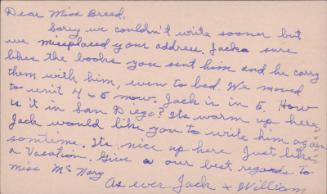 Dear Miss Breed,
Sorry we couldn't write sooner but
we missplaced your address. Jacka sure
likes the books you sent him and he carry
them with him, even to bed. We moved
to unit 4 & 6 now. Jack is in 6. How
is it in San Diego? Its warm up here,
Jack would like you to write him again
somtime. Its nice up here. Just like
a Vacation. Give our best regards to
Miss McNary
As ever Jack & William